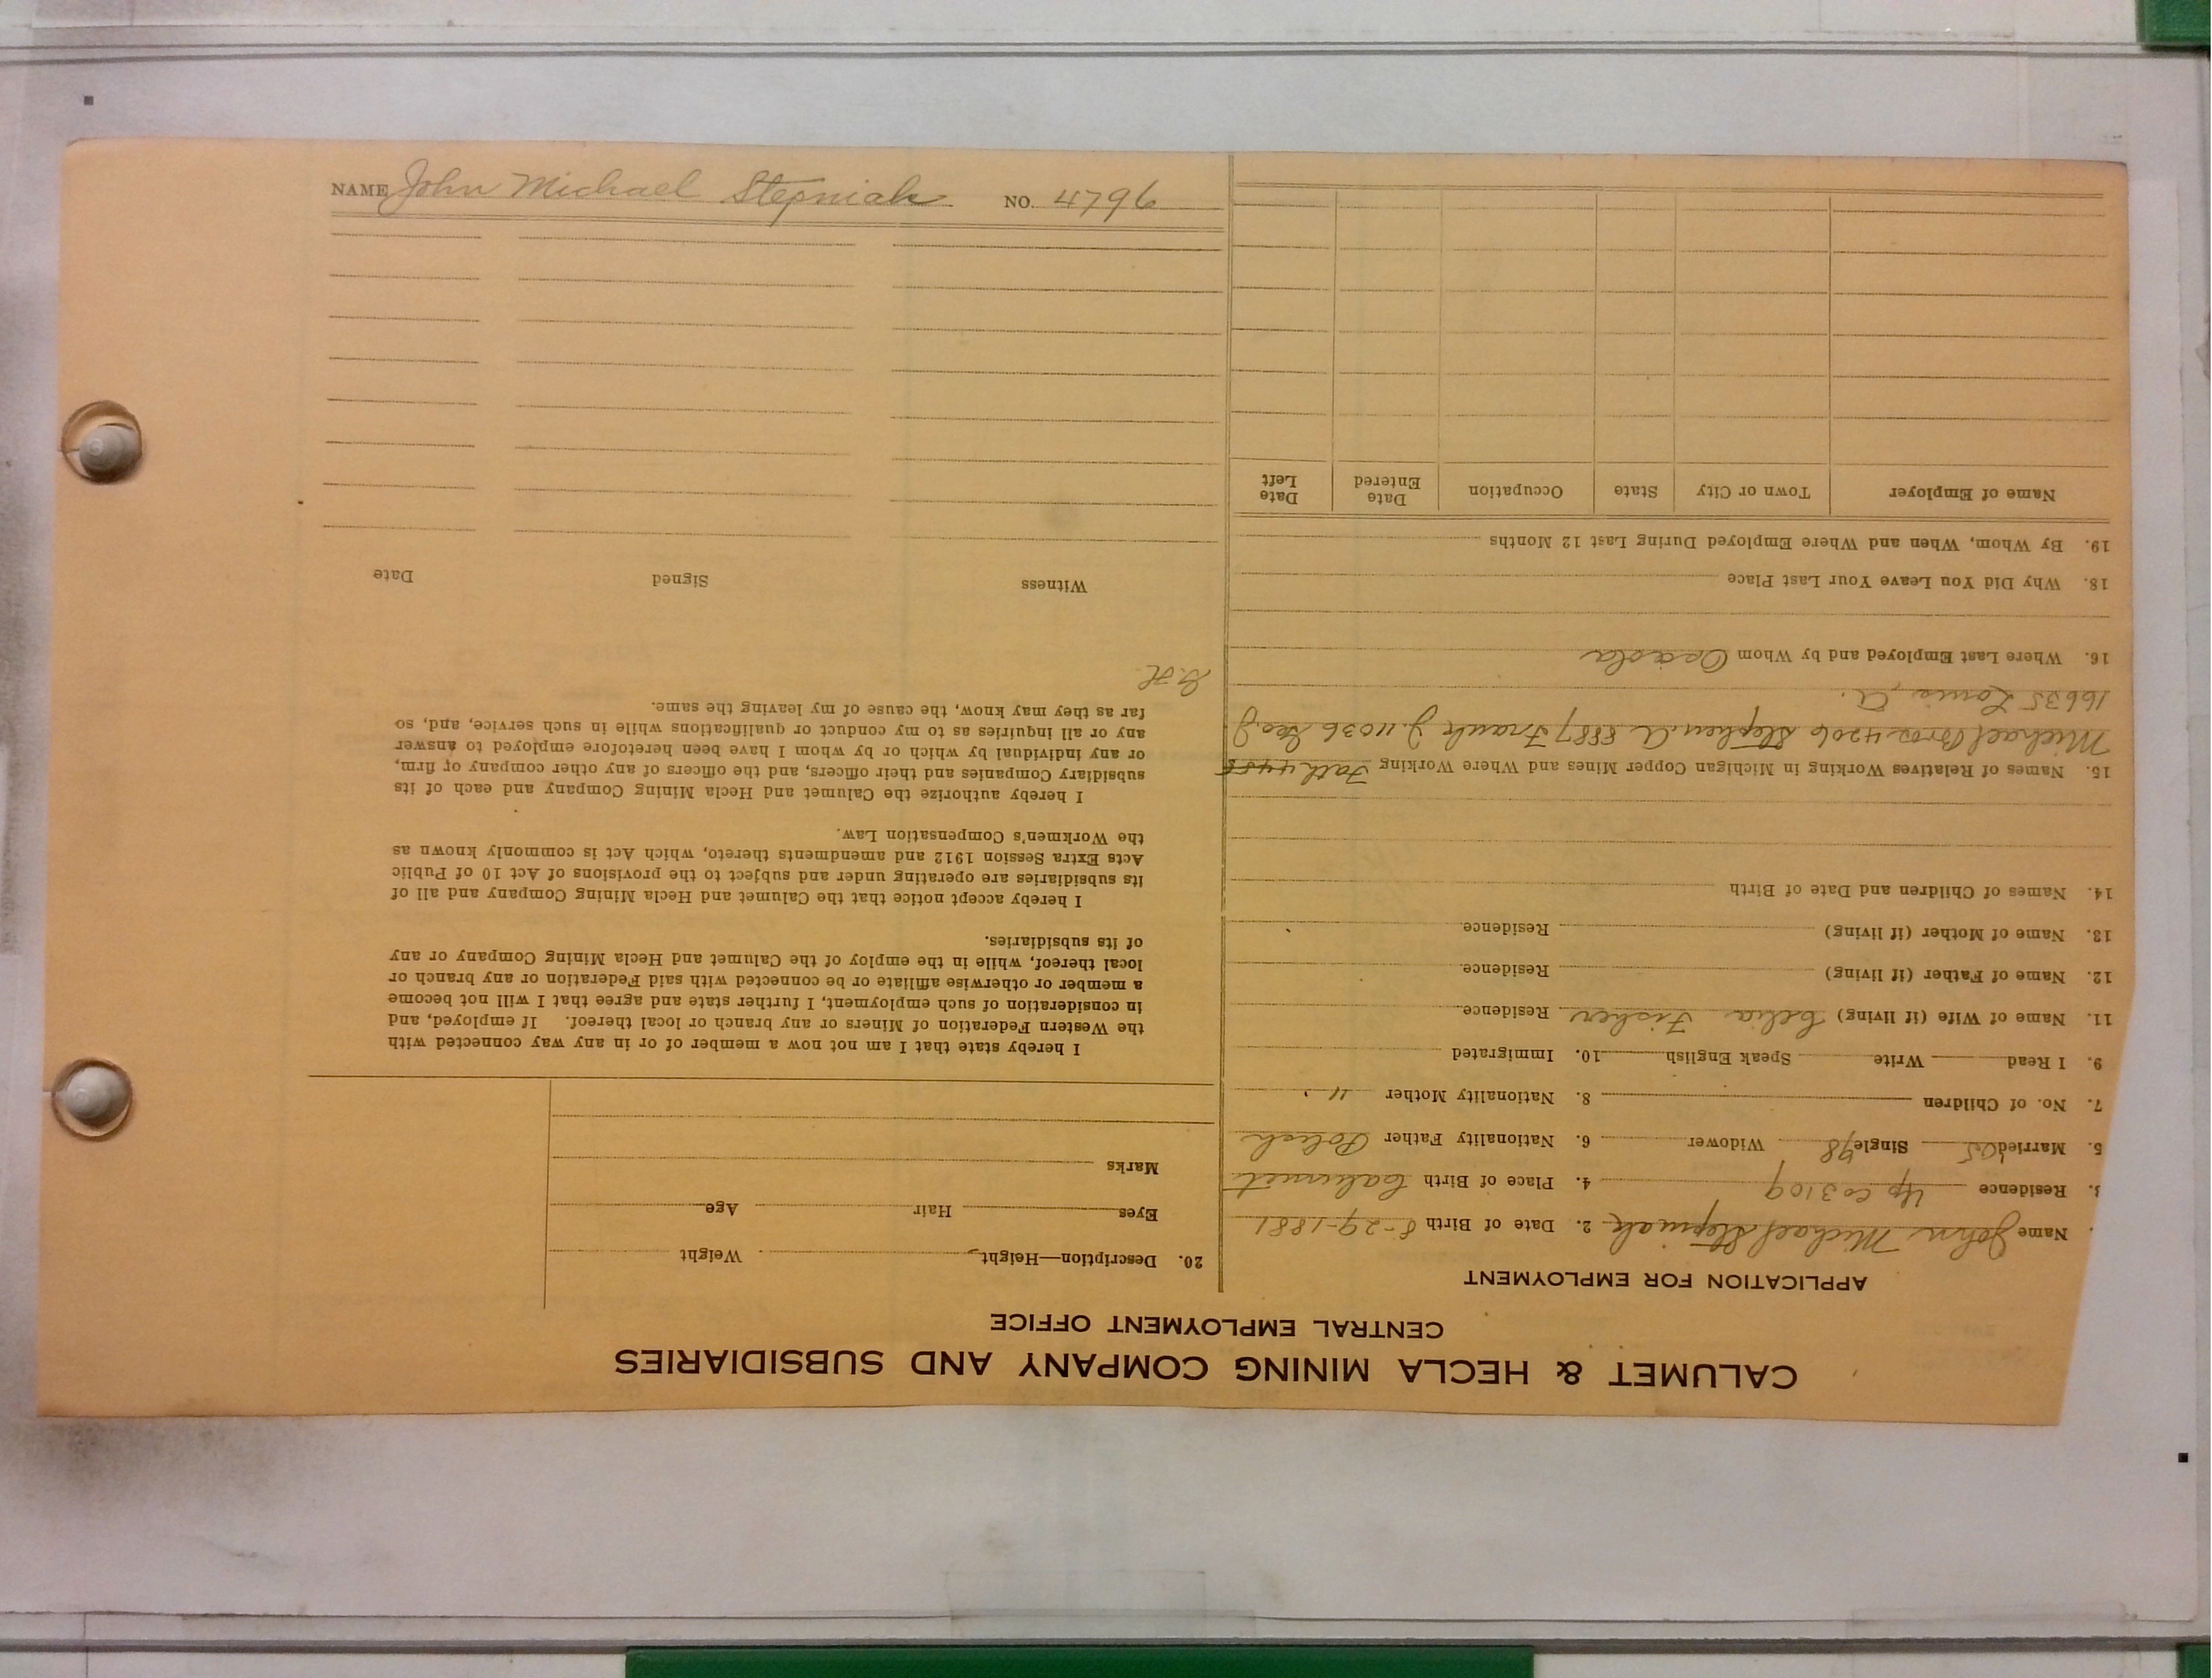 CALUMET & HECLA MINING COMPANY AND SUBSIDIARIES
CENTRAL EMPLOYMENT OFFICE
APPLICATION FOR EMPLOYMENT
Name John Michael Stepniak 2. Date of Birth 8-29-1881
3. Residence Up Co 3109 4. Place of Birth Calumet
5. Married '05 Single 98 Widower 6. Nationality Father Polish
7. No. of Children 8. Nationality Mother "
9. I Read Write Speak English 10. Immigrated
11. Name of Wife (if living) Celia Fisher Residence
12. Name of Father (if living) Residence
13. Name of Mother (if living) Residence
14. Names of Children and Date of Birth
15. Names of Relatives Working in Michigan Copper Mines and Where Working Fath 4455
Michael Bros. 4206 Stephen A 8887 Frank J. 11036 Geo. J.
16635 Louis A.
16. Where Last Employed and by Whom Osceola
18. Why Did You Leave Your Last Place
19. By Whom, When and Where Employed During Last 12 Months
Name of Employer Town or City State Occupation Date Entered Date Left
20. Description—Height Weight
Eyes Hair Age
Marks
I hereby state that I am not now a member of or in any way connected with
the Western Federation of Miners or any branch or local thereof. If employed, and
in consideration of such employment, I further state and agree that I will not become
a member or otherwise affiliate or be connected with said Federation or any branch or
local thereof, while in the employ of the Calumet and Hecla Mining Company or any
of its subsidiaries.
I hereby accept notice that the Calumet and Hecla Mining Company and all of
its subsidiaries are operating under and subject to the provisions of Act 10 of Public
Acts Extra Session 1912 and amendments thereto, which Act is commonly known as
the Workmen's Compensation Law.
I hereby authorize the Calumet and Hecla Mining Company and each of its
subsidiary Companies and their officers, and the officers of any other company or firm,
or any individual by which or by whom I have been heretofore employed to answer
any or all inquiries as to my conduct or qualifications while in such service, and, so
far as they may know, the cause of my leaving the same.
Witness Signed Date
NAME John Michael Stepniak NO. 4796